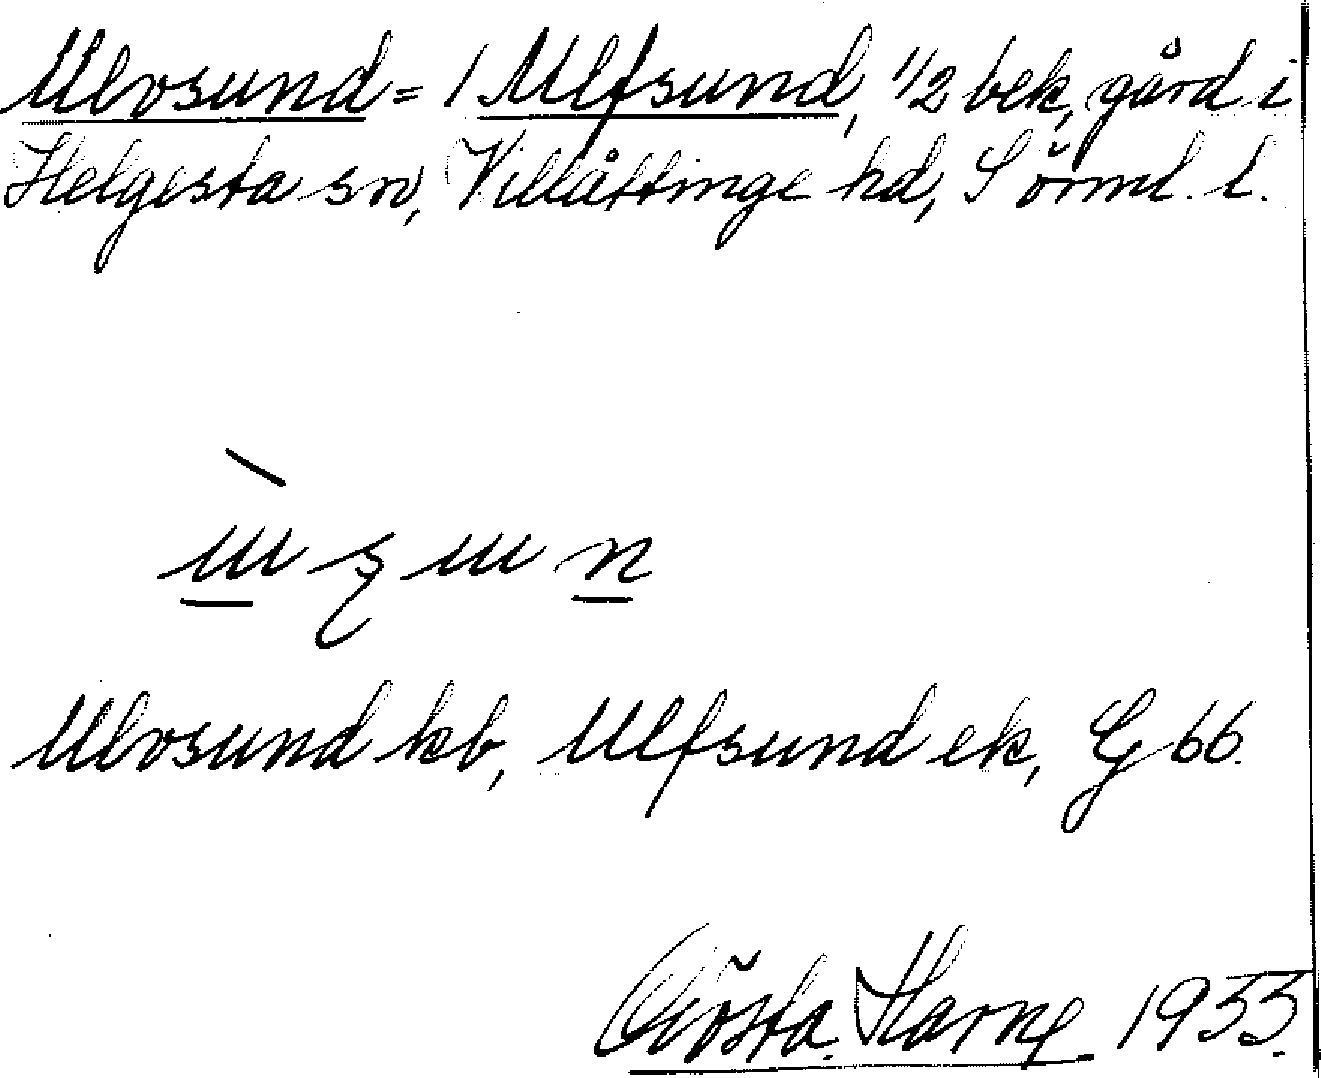 Ulvsund = 1 Ulfsund, 1/2 bek, gård i
Helgesta sn, Villåttinge hd, Sörml. l.
Ulvsund kb, Ulfsund ek, G 66.
Gösta 1933.